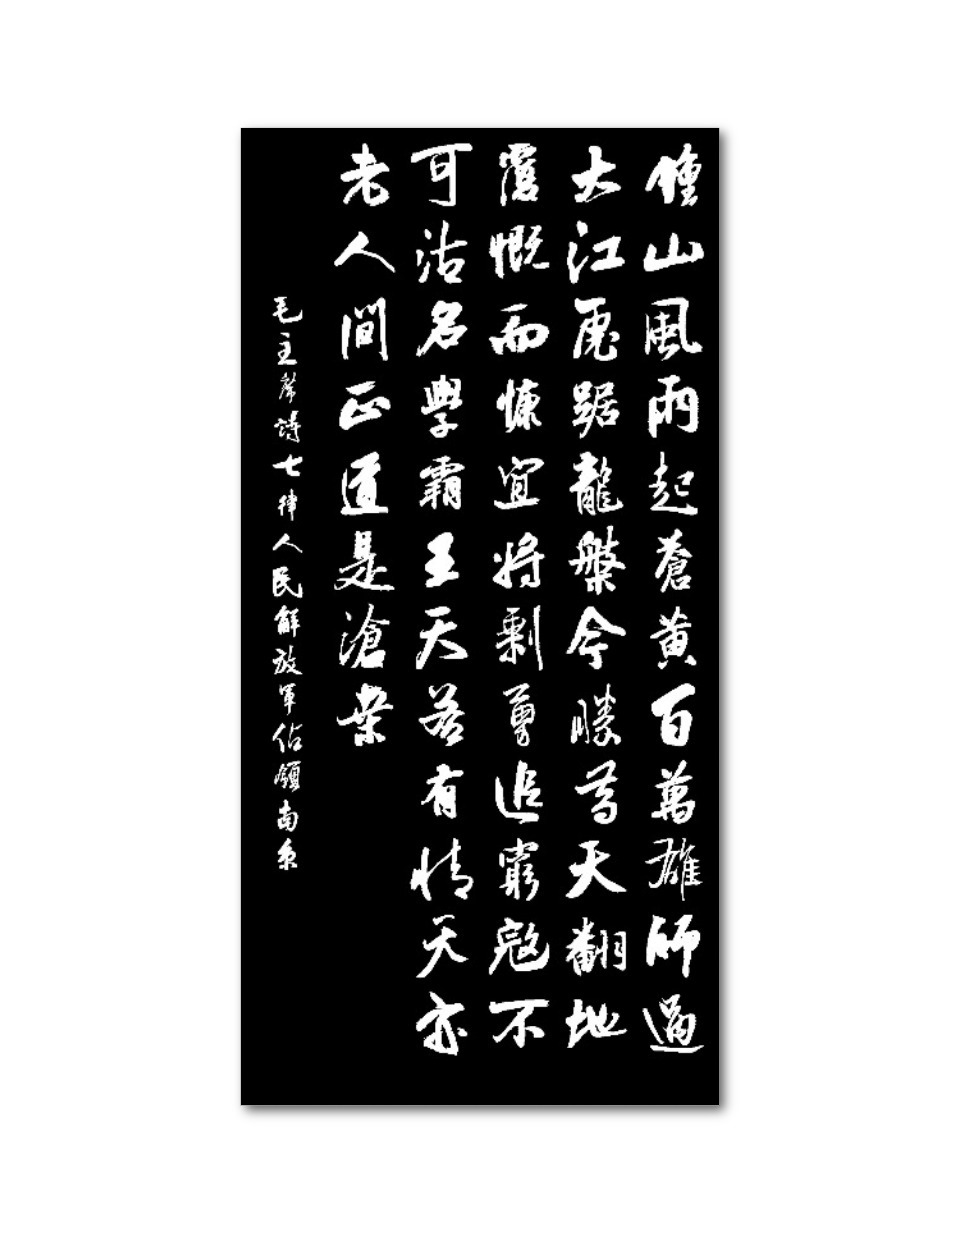 鍾山風雨起蒼黄百萬雄師過
大江虎踞龍盤今勝昔天翻地
覆慨而慷宜將剩勇追窮寇不
可沽名學霸王天若有情天亦
老人間正道是滄桑
毛主席詩七律人民解放軍佔領南京